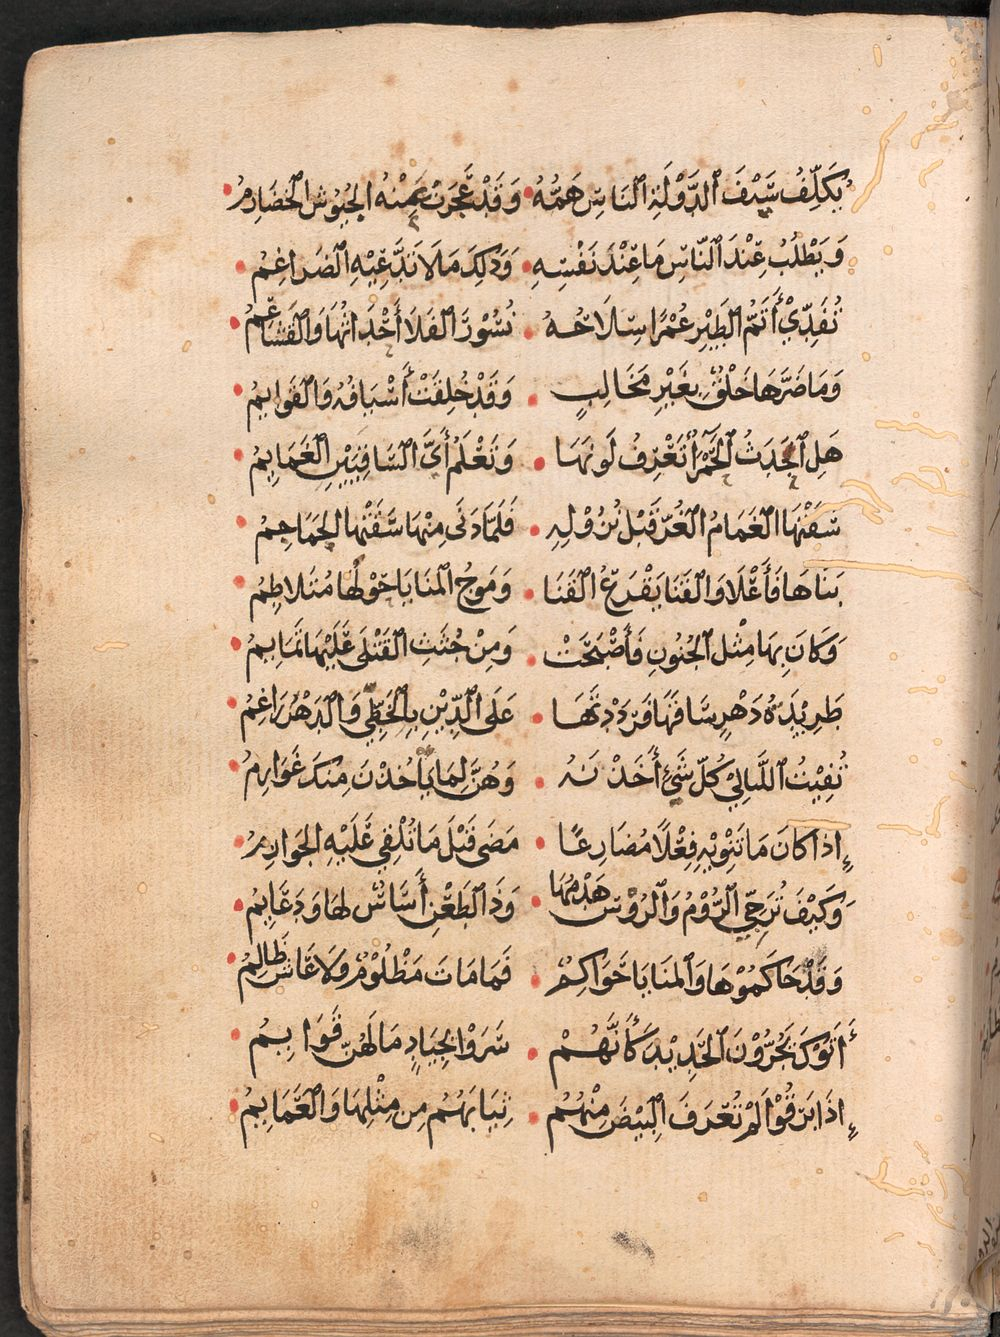 يُكَلِّفُ سَيْفَ ٱلدَّوْلَةِ ٱلنَاسِ هَمَّهُ وَقَدْ عَجَزَتْ عَنْهُ الجُيُوْشُ الخَضَارِمُ
وَيَطْلُبُ عِنْدَ ٱلنَّاسِ مَا عِنْدَ نَفْسِهِ وَذَلِكَ مَا لَا تَدَّعِيْهِ الضَرَاغِمُ
تُفَدِّيْ أَتَمُّ الطَيْرِ عُمْرًا سِلَاحَهُ نُسُوْرُ الفَلَا أَحْدَاثُهَا وَالقَشَاعِمُ
وَمَا ضَرَّهَا خَلْقٌ بِغَيْرِ مَخَالِبٍ وَقَدْ خُلِقَتْ أَسْيَافُهُ وَالقَوَايِمُ
هَلِ ٱلحَدَثُ ٱلحَمْرَاُ تَعْرِفُ لَونَهَا وَتَعْلَمُ أَيَّ السَاقِيَيْنِ الغَمَايِمُ
سَقَتْهَا الغَمَامُ الغُرُّ قَبْلَ نُزُوْلِهِ فَلَمَا دَنَى مِنْهَا سَقَتْهَا الجَمَاجِمُ
بَنَاهَا فَأَعْلَا وَالقَنَا يَقْرَعُ القَنَا وَمَوجُ المَنَايَا حَوْلَهَا مُتَلَاطِمُ
وَكَانَ بِهَا مِثْلُ ٱلجُنُونِ فَأَصْبَحَتْ وَمِنْ جُثَثِ القَتْلَى عَلَيْهَا تَمَايِمُ
طَرِيْدَةُ دَهْرٍ سَاقَهَا فَرَدَدْتَهَا عَلَى ٱلدِّيْنِ بِالخَطِّيِّ وَالدَهْرُ رَاغِمُ
تُفِيْتُ ٱللَّيَالِيْ كُلَّ شَيْءٍ أَخَذْنَهُ وَهُنَّ لِمَا يَأخُذْنَ مِنكَ غَوَارِمُ
إِذَا كَانَ مَا تَنْوِيْهِ فِعْلًا مُضَارِعًا مَضَى قَبْلَ مَا تُلْقِي عَلَيْهِ الجَوَازِمُ
وَكَيْفَ تُرَجِّي ٱلرُّوْمُ وَٱلرُوْسُ هَدْمَهَا وَذَا ٱلطَعْنِ أَسَاسٌ لَهَا وَدَعَايِمُ
وَقَدْ حَاكَمُوْهَا وَٱلمَنَايَا حَوَاكِمٌ فَمَا مَاتَ مَظْلُوْمٌ وَلَا عَاشَ ظَالِمُ
أَتَوْكَ يَجُرُّوْنَ ٱلحَدِيْدَ كَأَنَّهُمْ سَرَوْا بِجِيَادٍ مَا لَهُنَّ قَوَايِمُ
إِذَا بَرَقُوْا لَمْ تُعْرَفَ ٱلبِيْضُ مِنْهُمُ ثِيَابُهُمُ مِن مِثْلِهَا وَالعَمَايِمُ